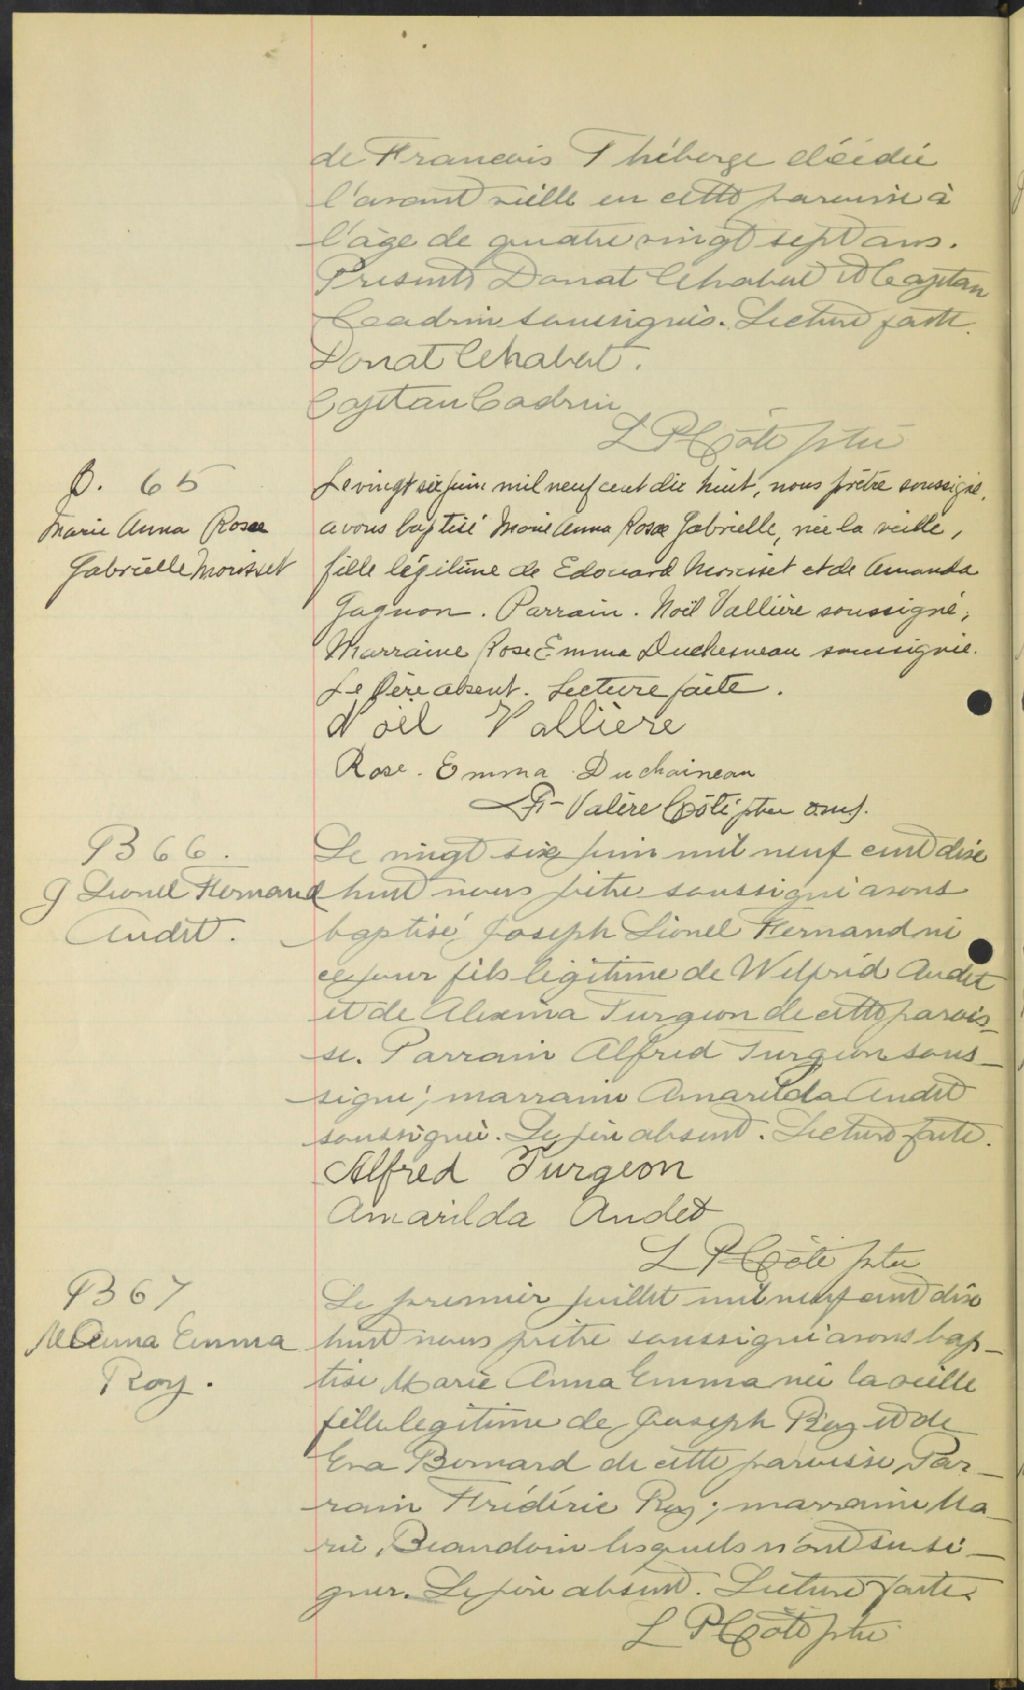 de Francois Théberge décédé
l'avant veille en cette paroisse à
l'âge de quatre vingt sept ans.
Présents Donat Chabot et Cajetan
Cadrin soussignés. Lecture faite.
Donat Chabot.
Cajetan Cadrin
L P Côté ptre
B. 65
Marie Anna Rose
Gabrielle Morisset
Le vingt six juin mil neuf cent dix huit, nous prêtre soussigné,
avons baptisé Marie Anna Rose Gabrielle, née la veille,
fille légitime de Edouard Morisset et de Amanda
Gagnon. Parrain. Noël Vallière soussigné,
Marraine Rose Emma Duchesneau soussignée.
Le Père absent. Lecture faite.
Noël Vallière
Rose. Emma Duchaineau
Valère Côté ptre
B 66.
J Lionel Fernand
Audet.
Le vingt six juin mil neuf cent dix
huit nous prêtre soussigné avons
baptisé Joseph Lionel Fernand né
ce jour fils légitime de Wilfrid Audet
et de Alexina Turgeon de cette parois-
se. Parrain Alfred Turgeon sous-
signé; marraine Amarilda Audet
soussignée. Le père absent. Lecture faite.
Alfred Turgeon
Amarilda Audet
L P Côté ptre
B 67
M Anna Emma
Roy.
Le premier juillet mil neuf cent dix
huit nous prêtre soussigné avons bap-
tisé Marie Anna Emma née la veille
fille legitime de Joseph Roy et de
Eva Bernard de cette paroisse, Par-
rain Frédéric Roy; marraine Ma-
rie Beaudoin lesquels n'ont su si-
gner. Le père absent. Lecture faite.
L P Côté ptre